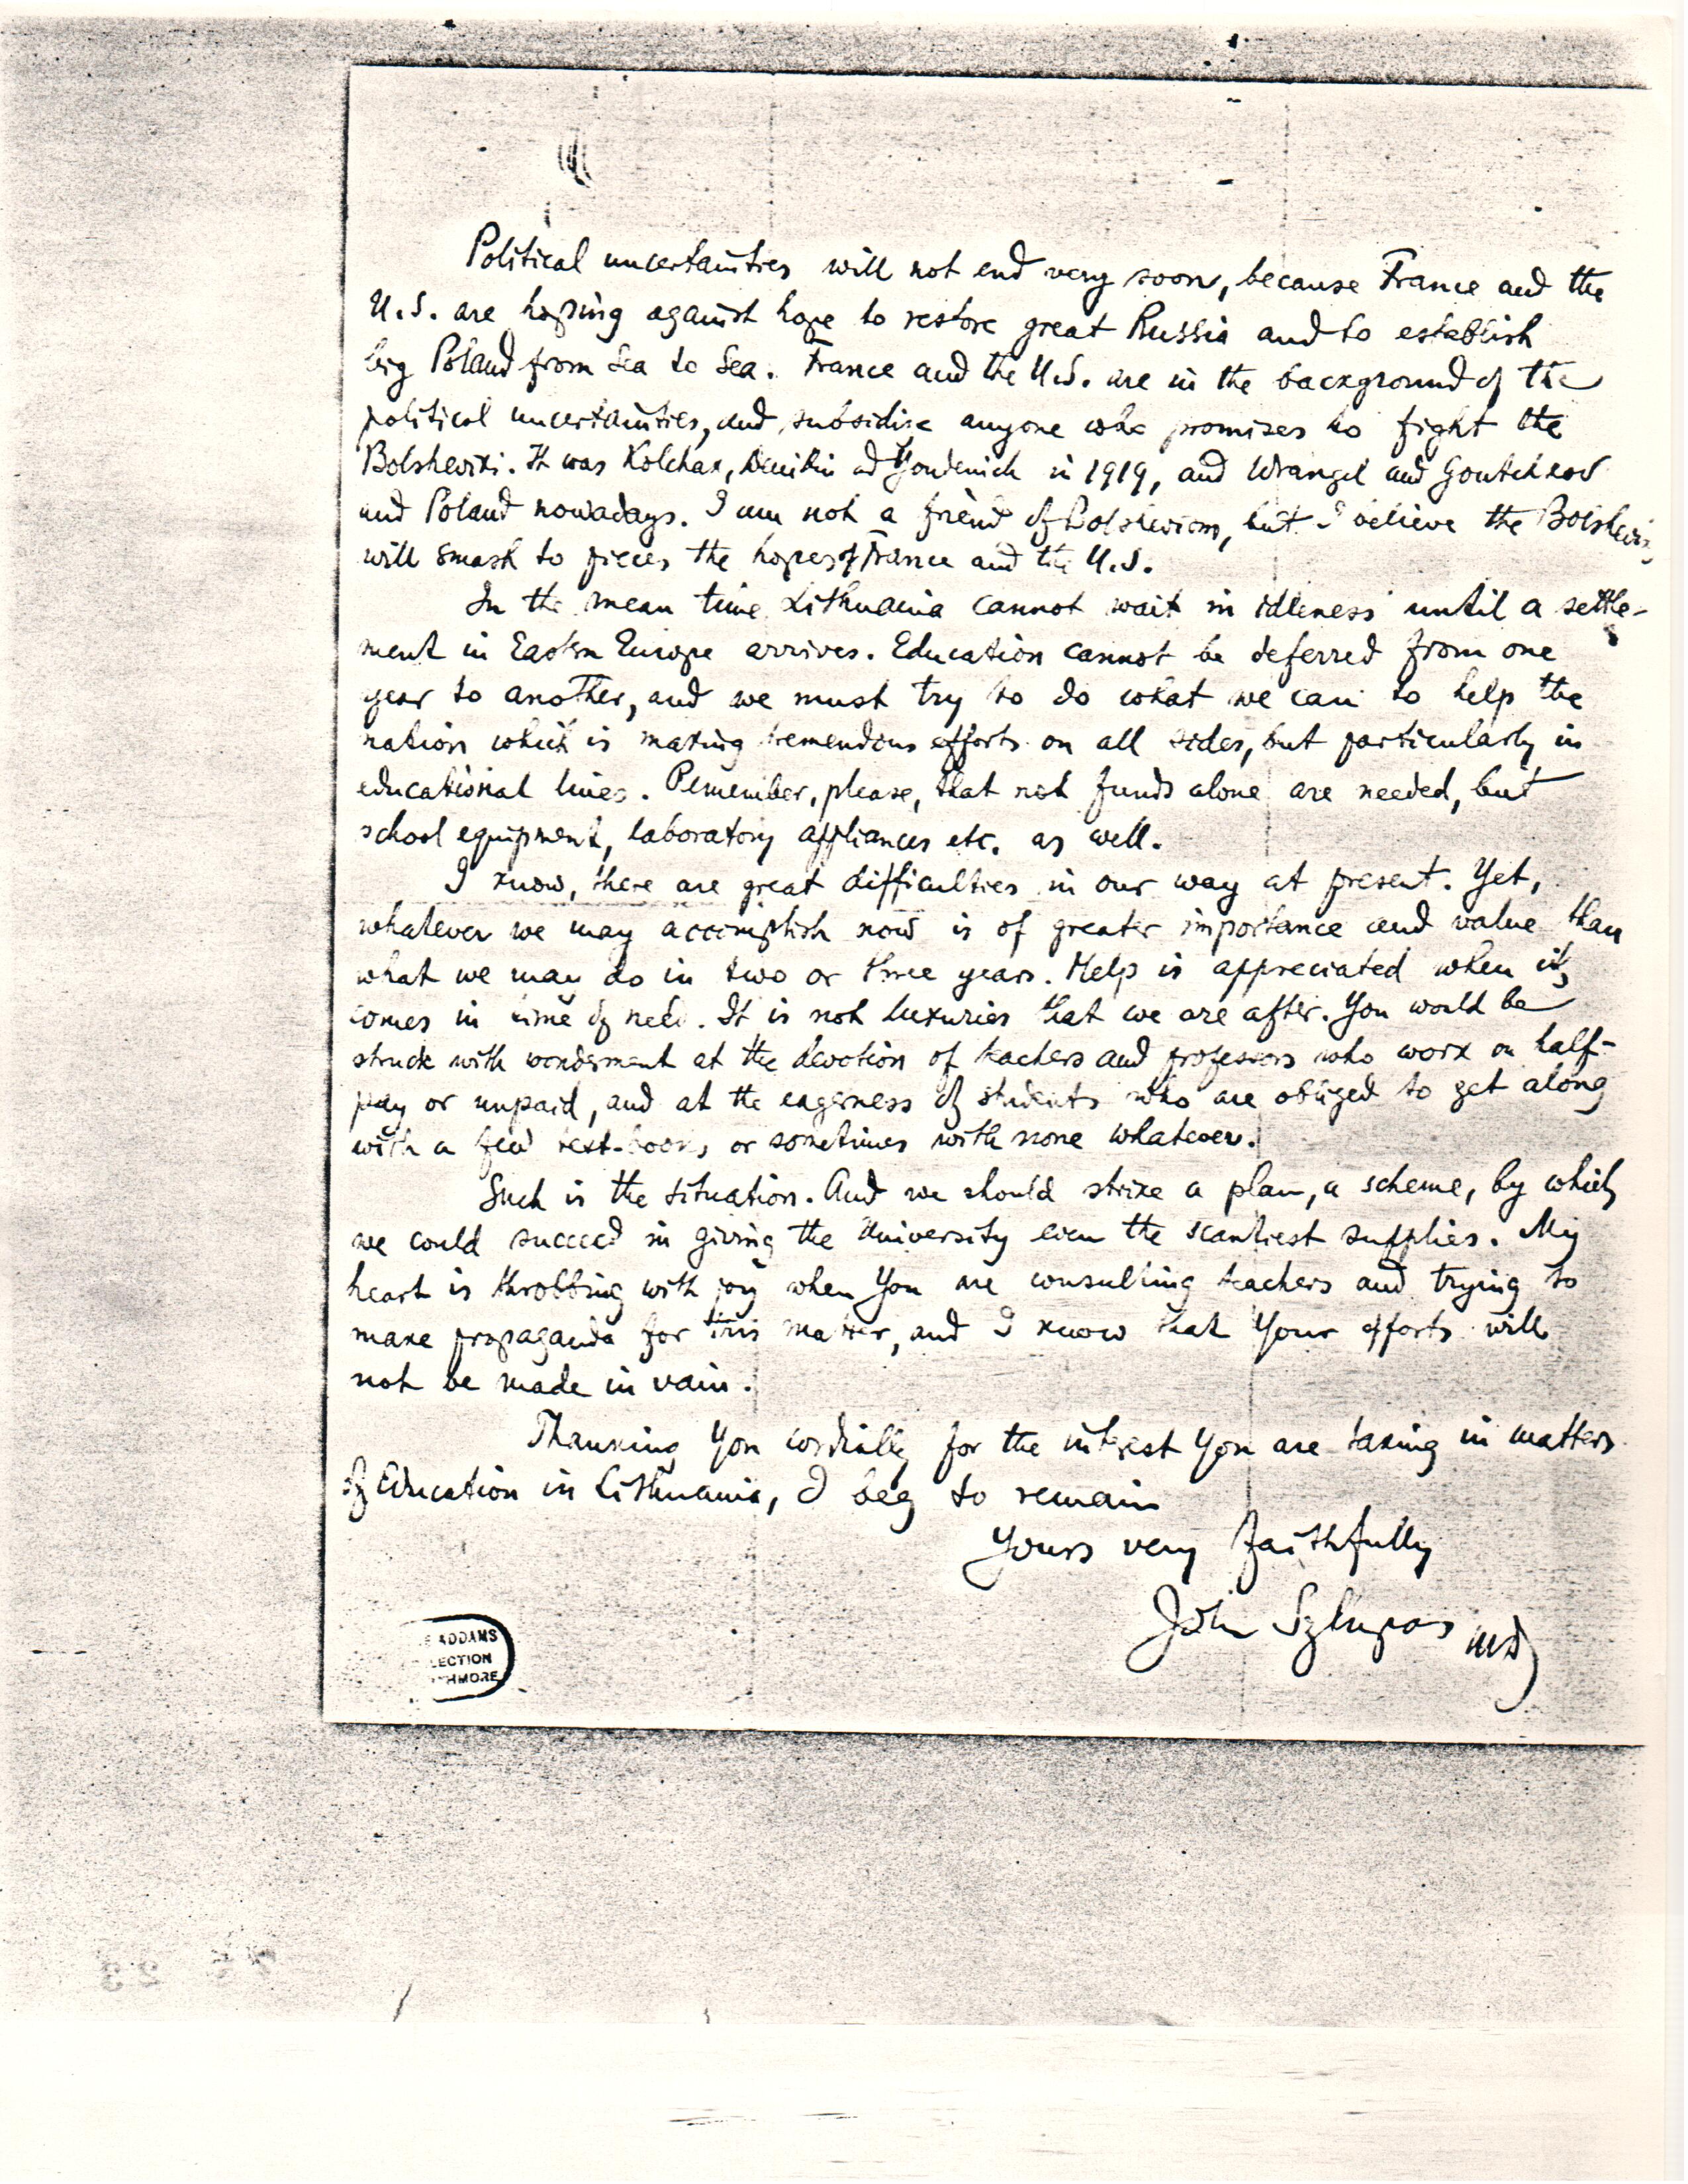 Political uncertainties will not end very soon, because France and the
U.S. are hoping against hope to restore great Russia and to establish
big Poland from Sea to Sea. France and the U.S. are in the background of the
political uncertainties, and subsidise anyone who promises to fight the
Bolsheviki. It was Kolchak, Denikin ad Youdenich in 1919, and Wrangel and Goutchkov
and Poland nowadays. I am not a friend of Bolshevism, but I believe the Bolsheviki
will smash to pieces the hopes of France and the U.S.
In the mean time Lithuania cannot wait in idleness until a settle-
ment in Eastern Europe arrives. Education cannot be deferred from one
year to another, and we must try to do what we can to help the
nation which is making tremendous efforts on all sides, but particularly in
educational lines. Remember, please, that not funds alone are needed, but
school equipment, laboratory appliances etc. as well.
I know, there are great difficulties in our way at present. Yet,
whatever we may accomplish now is of greater importance and value than
what we may do in two or three years. Help is appreciated when it
comes in time of need. It is not luxuries that we are after. You would be
struck with wonderment at the devotion of teachers and professors who work on half-
pay or unpaid, and at the eagerness of students who are obliged to get along
with a few text-books or sometimes with none whatever.
Such is the situation. And we should strike a plan, a scheme, by which
we could succeed in giving the University even the scantiest supplies. My
heart is throbbing with joy when You are consulting teachers and trying to
make propaganda for this matter, and I know that Your efforts will
not be made in vain.
Thanking You cordially for the interest You are taking in matters
of Education in Lithuania, I beg to remain
Yours very faithfully
John Szlupas MD
E ADDAMS
LECTION
THMORE